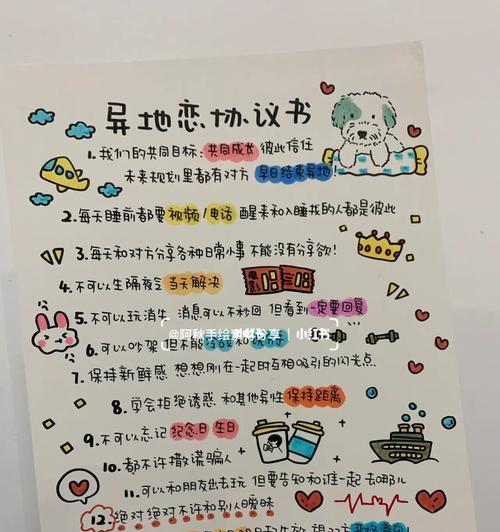 异地恋协议书
1. 我们的共同目标:共同成长 彼此信任
未来规划里都有对方 早日结束异地!
2. 每天睡前都要视频/电话 醒来和入睡找的人都是彼此
3. 每天和对方分享各种日常小事 不能没有分享欲!
4. 不可以生隔夜气 当天解决
电影
5. 不可以玩消失 消息可以不秒回 但看到一定要回复
@阿秋手绘 小红书
6. 可以吵架 但不能冷战和说分手
7. 保持新鲜感 想想刚在一起时互相吸引的闪光点
8. 学会拒绝诱惑 和其他异性保持距离
9. 不可以忘记纪念日 生日
10. 都不许撒谎骗人
11. 可以和朋友出去玩 但要告知和谁一起 去哪儿
12. 绝对绝对不许和别人暧昧